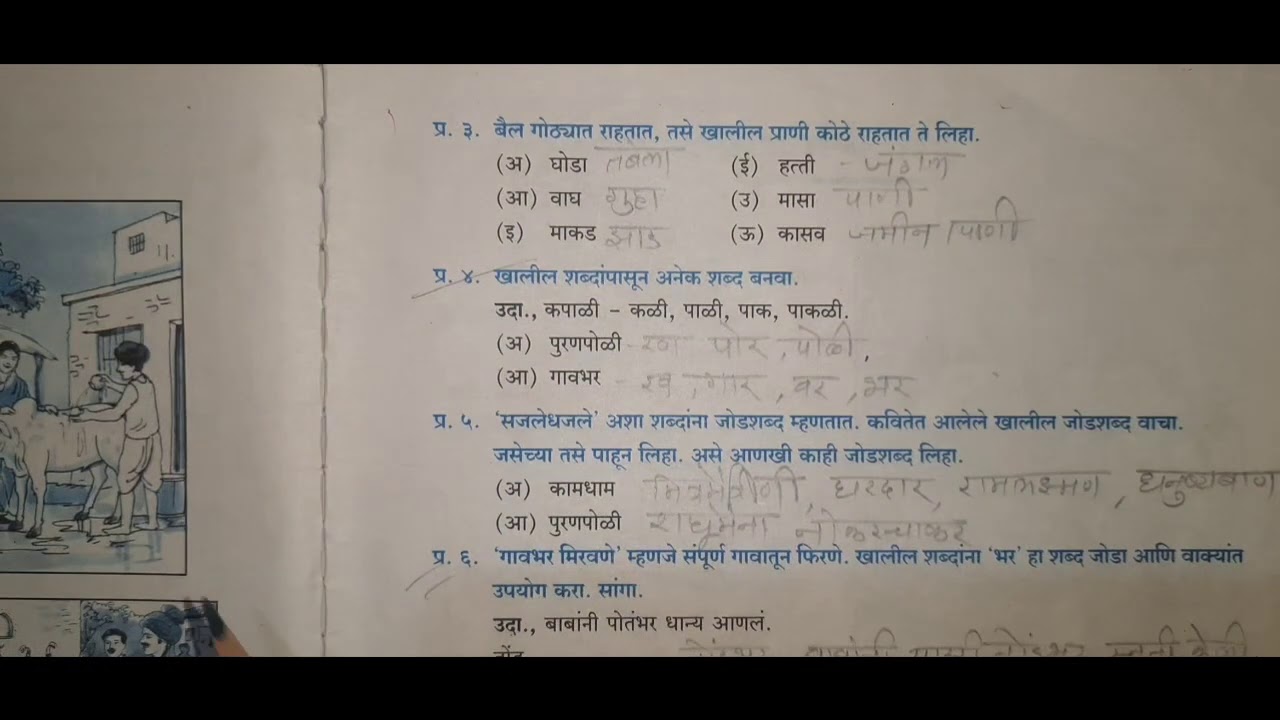 प्र. ३. बैल गोठ्यात राहतात, तसे खालील प्राणी कोठे राहतात ते लिहा.
(अ) घोडा तबेला (ई) हत्ती - जंगल
(आ) वाघ गुहा (उ) मासा पाणी
(इ) माकड झाड (ऊ) कासव जमीन /पाणी
प्र. ४. खालील शब्दांपासून अनेक शब्द बनवा.
उदा., कपाळी - कळी, पाळी, पाक, पाकळी.
(अ) पुरणपोळी - रण पोर, पोळी,
(आ) गावभर - रव, गार, वर, भर
प्र. ५. 'सजलेधजले' अशा शब्दांना जोडशब्द म्हणतात. कवितेत आलेले खालील जोडशब्द वाचा.
जसेच्या तसे पाहून लिहा. असे आणखी काही जोडशब्द लिहा.
(अ) कामधाम मित्रमैत्रीणी, घरदार, रामलक्ष्मण, धनुष्यबाण
(आ) पुरणपोळी राघूमैना नोकरचाकर
प्र. ६. 'गावभर मिरवणे' म्हणजे संपूर्ण गावातून फिरणे. खालील शब्दांना 'भर' हा शब्द जोडा आणि वाक्यांत
उपयोग करा. सांगा.
उदा., बाबांनी पोतंभर धान्य आणलं.
तोंड तोंडभर